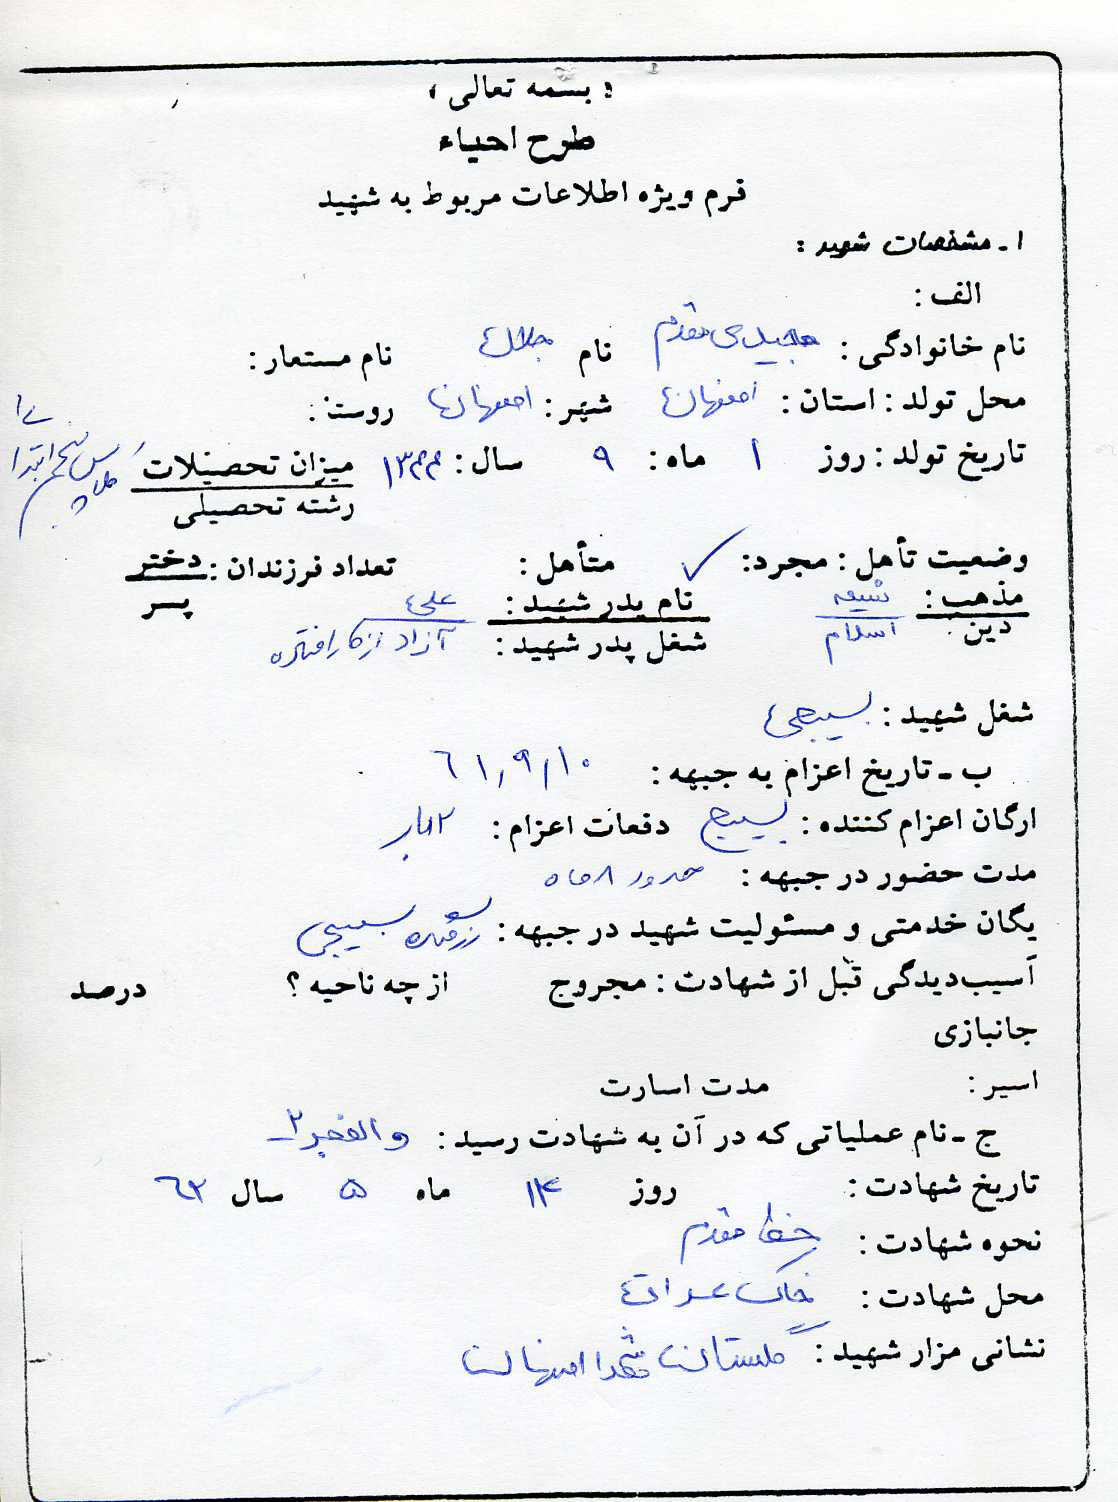 « بسمه تعالی »
طرح احیاء
فرم ویژه اطلاعات مربوط به شهید
۱ـ مشخصات شهید :
الف :
نام خانوادگی : مجیدی مقدم نام جلال نام مستعار :
محل تولد : استان : اصفهان شهر : اصفهان روستا :
تاریخ تولد : روز ۱ ماه : ۹ سال : ۱۳۴۴ میزان تحصیلات کلاس پنجم ابتدایی
رشته تحصیلی
وضعیت تأهل : مجرد : ✓ متأهل : تعداد فرزندان : دختر
پسر
مذهب : شیعه نام پدر شهید : علی
دین : اسلام شغل پدر شهید : آزاد از کار افتاده
شغل شهید : بسیجی
ب ـ تاریخ اعزام به جبهه : ۶۱,۹,۱۰
ارگان اعزام کننده : بسیج دفعات اعزام : ۲ بار
مدت حضور در جبهه : حدود ۸ ماه
یگان خدمتی و مسئولیت شهید در جبهه : رزمنده بسیجی
آسیب‌دیدگی قبل از شهادت : مجروح از چه ناحیه ؟ درصد
جانبازی
اسیر : مدت اسارت
ج ـ نام عملیاتی که در آن به شهادت رسید : والفجر ۲
تاریخ شهادت : روز ۱۴ ماه ۵ سال ۶۲
نحوه شهادت : خط مقدم
محل شهادت : خاک عراق
نشانی مزار شهید : گلستان شهدا اصفهان